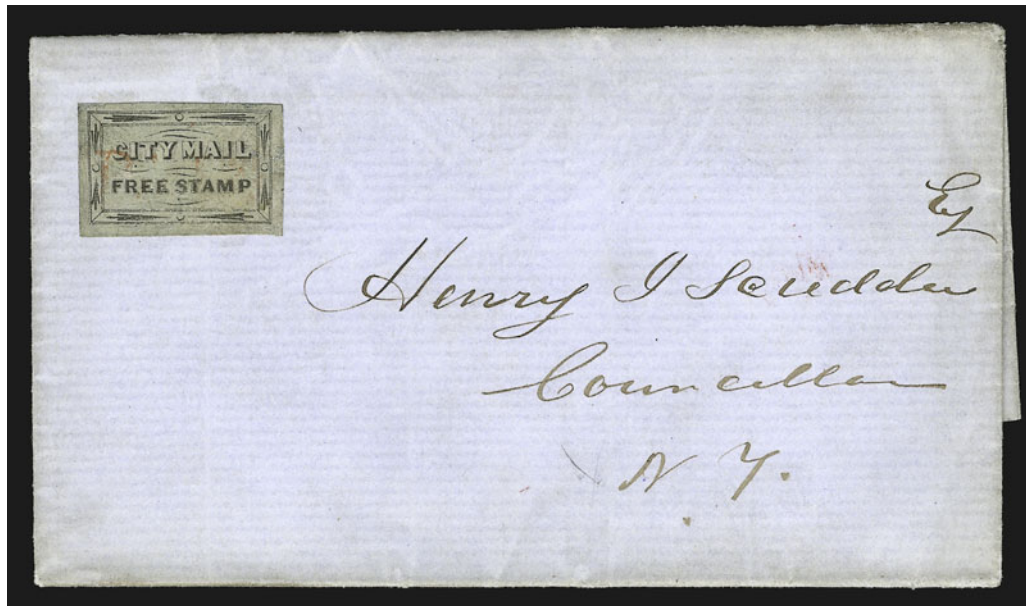 CITY MAIL
FREE STAMP
Esq
Henry J Scudder
Councellor
N Y.